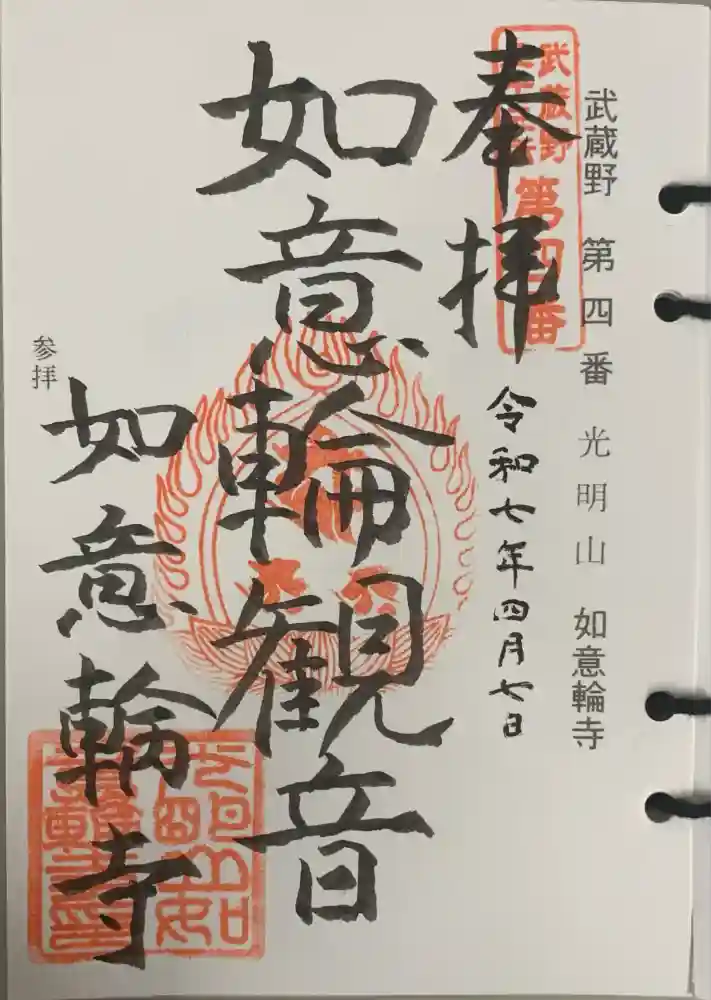 武蔵野 第四番 光明山 如意輪寺
武蔵野
第四番
奉拝
令和七年四月七日
如意輪観音
参拝
如意輪寺